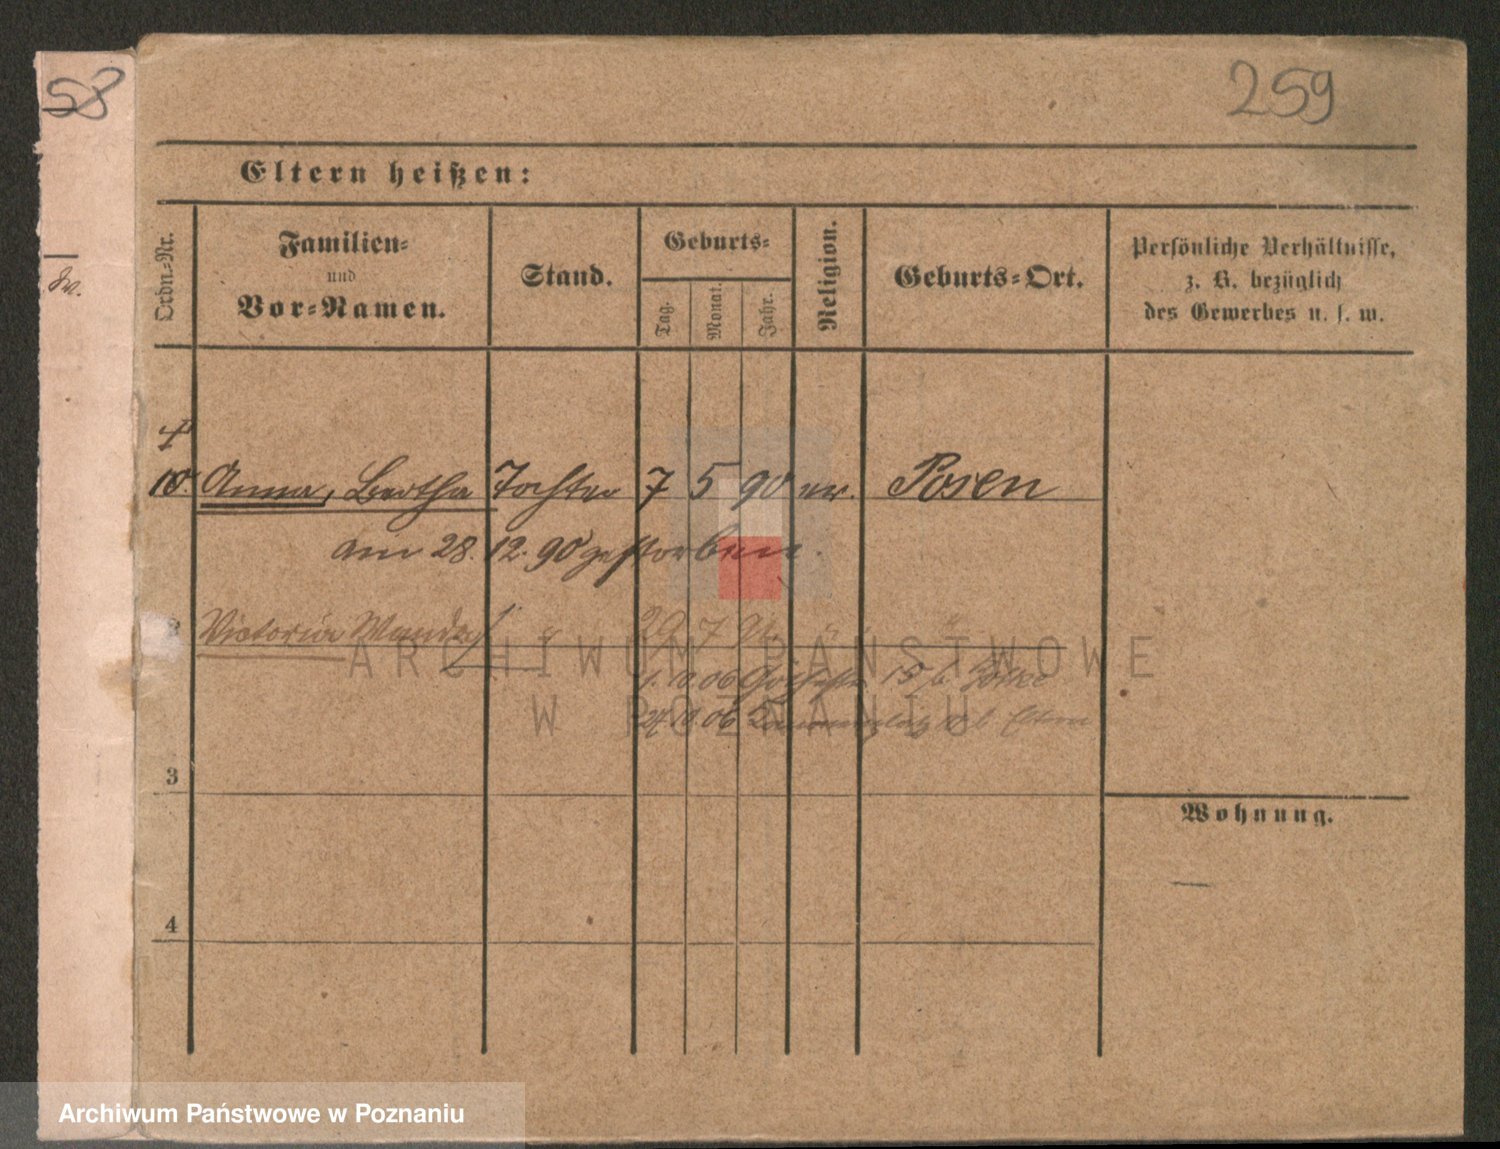 58
259
Eltern heißen:
Ordn.-Nr.
Familien-
und
Vor-Namen.
Stand.
Geburts-
Tag.
Monat.
Jahr.
Religion.
Geburts-Ort.
Persönliche Verhältnisse,
z. B. bezüglich
des Gewerbes u. s. w.
10 Anna, Bertha Tochter 7 5 90 ev. Posen
am 28. 12. 90 gestorben.
Victoria 29 7
10 06 15
24 10 06 Eltern
3
Wohnung.
4
ARCHIWUM PAŃSTWOWE
W POZNANIU
Archiwum Państwowe w Poznaniu